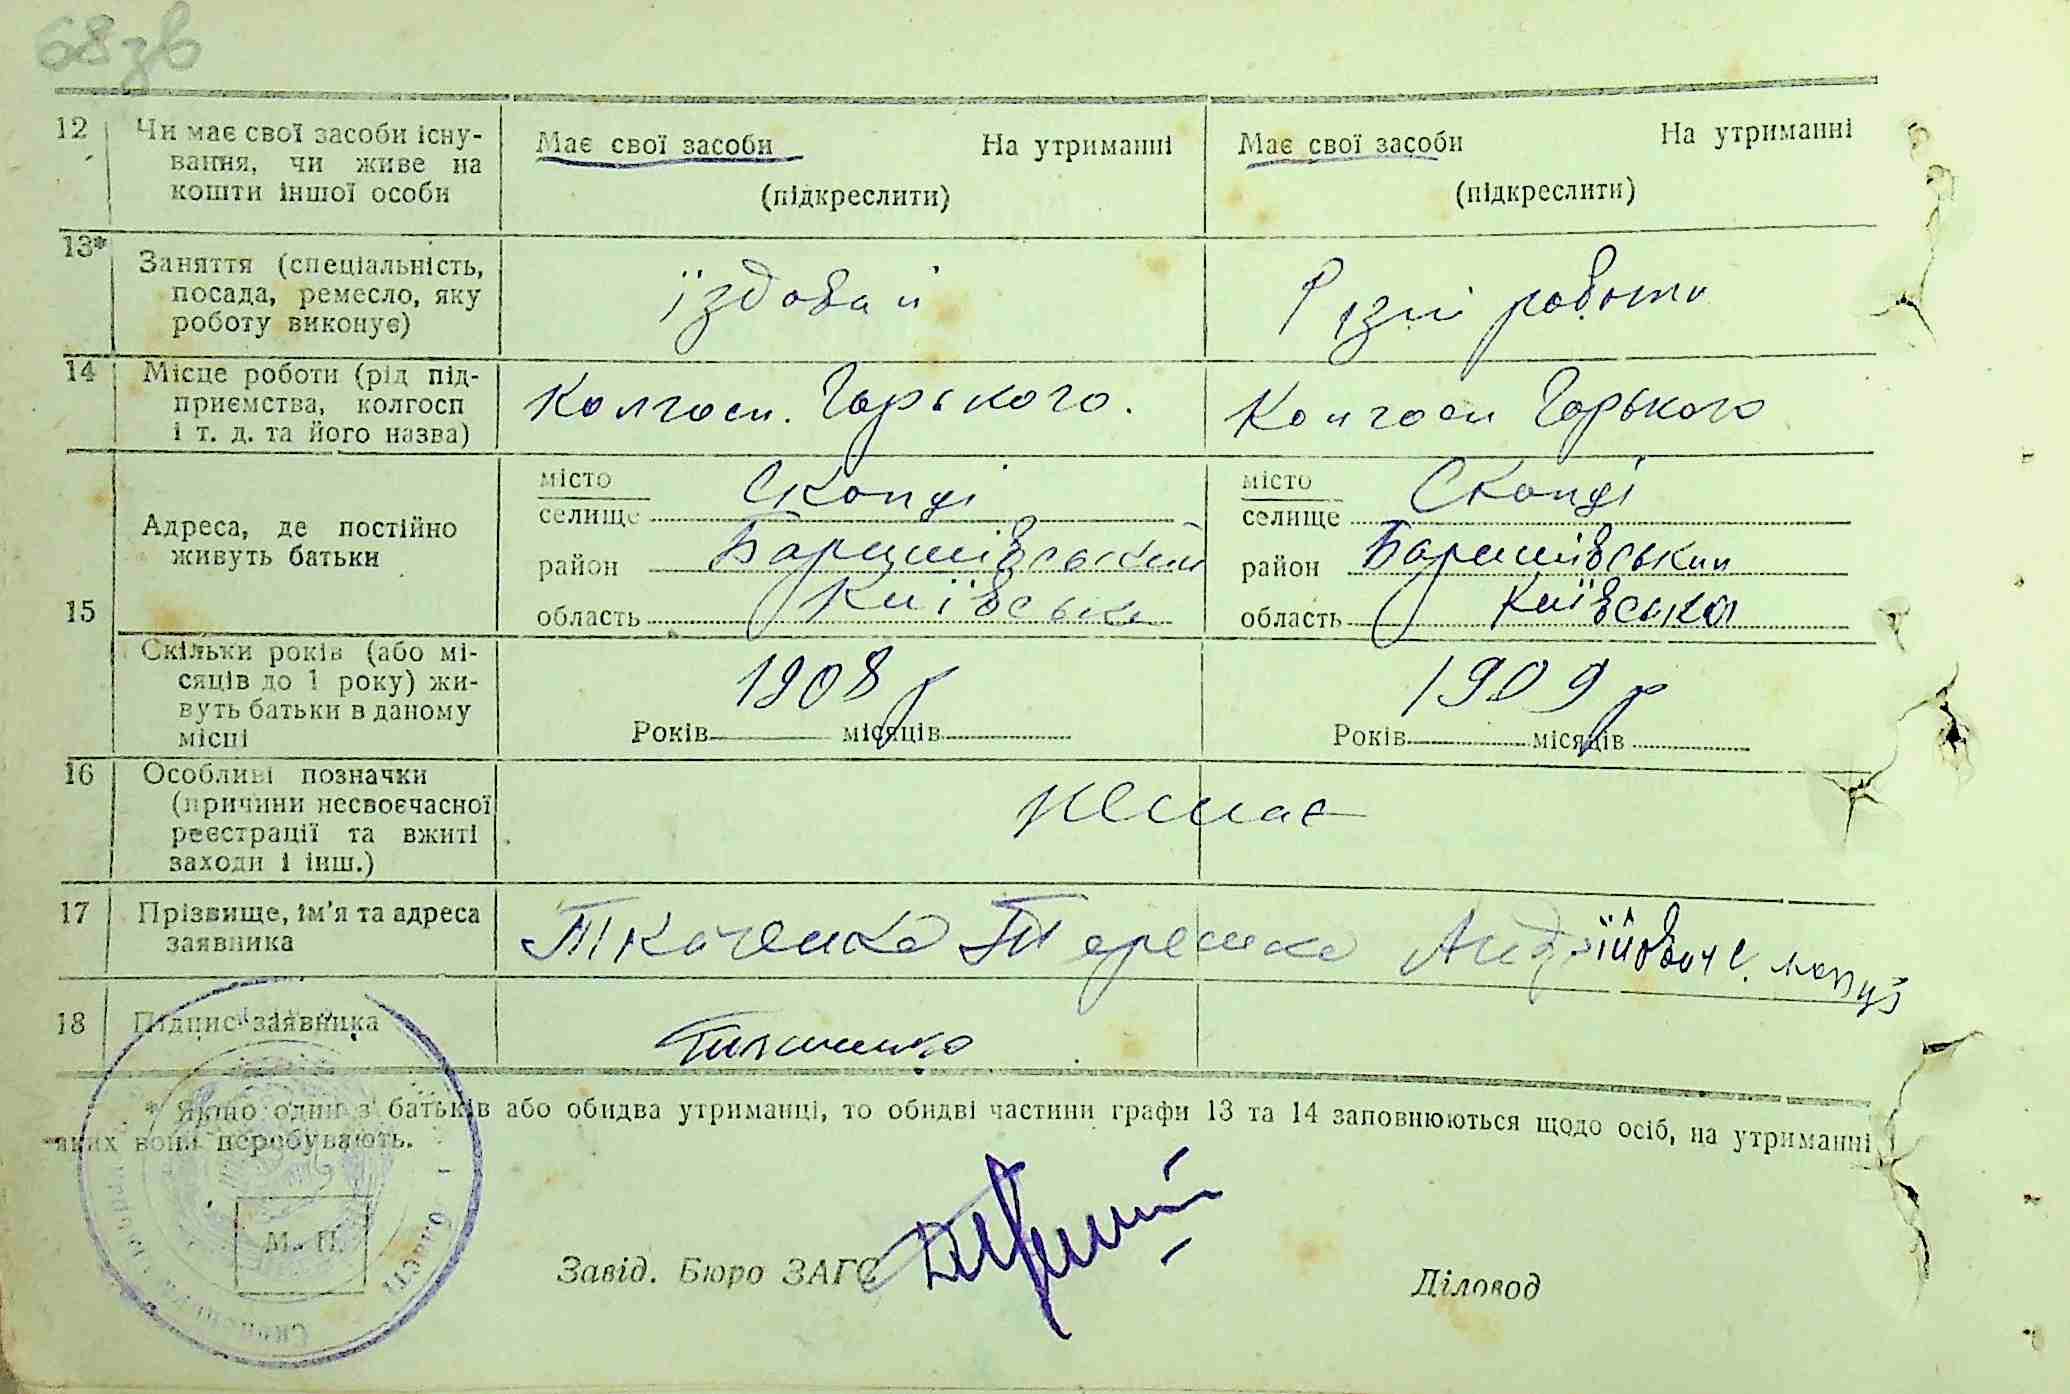 68зв
12 Чи має свої засоби існу-
вання, чи живе на
кошти іншої особи
Має свої засоби На утриманні
(підкреслити)
Має свої засоби На утриманні
(підкреслити)
13* Заняття (спеціальність,
посада, ремесло, яку
роботу виконує)
їздовий
Різні роботи
14 Місце роботи (рід під-
приємства, колгосп
і т. д. та його назва)
Колгосп. Горького.
Колгосп Горького
15
Адреса, де постійно
живуть батьки
місто
селище Скопці
район Баришівський
область Київська
місто
селище Скопці
район Баришівський
область Київська
Скільки років (або мі-
сяців до 1 року) жи-
вуть батьки в даному
місці
1908 р
Років місяців
1909 р
Років місяців
16 Особливі позначки
(причини несвоєчасної
реєстрації та вжиті
заходи і інш.)
немає
17 Прізвище, ім'я та адреса
заявника
Ткаченко Терешко Андрійович с.
18 Підпис заявника
Ткаченко
* Якщо один з батьків або обидва утриманці, то обидві частини графи 13 та 14 заповнюються щодо осіб, на утриманні
яких вони перебувають.
М. П.
Завід. Бюро ЗАГС
Діловод